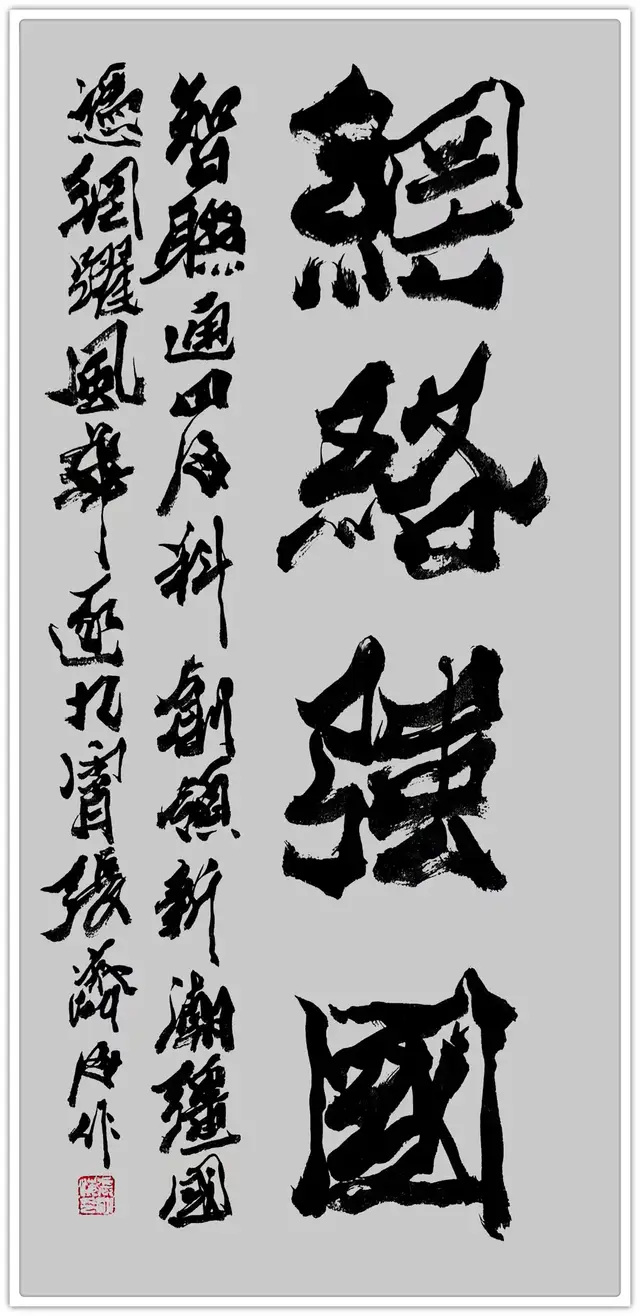 網絡強國
智聯通四海科創領新潮彊國
憑網躍風華逐九霄張海作